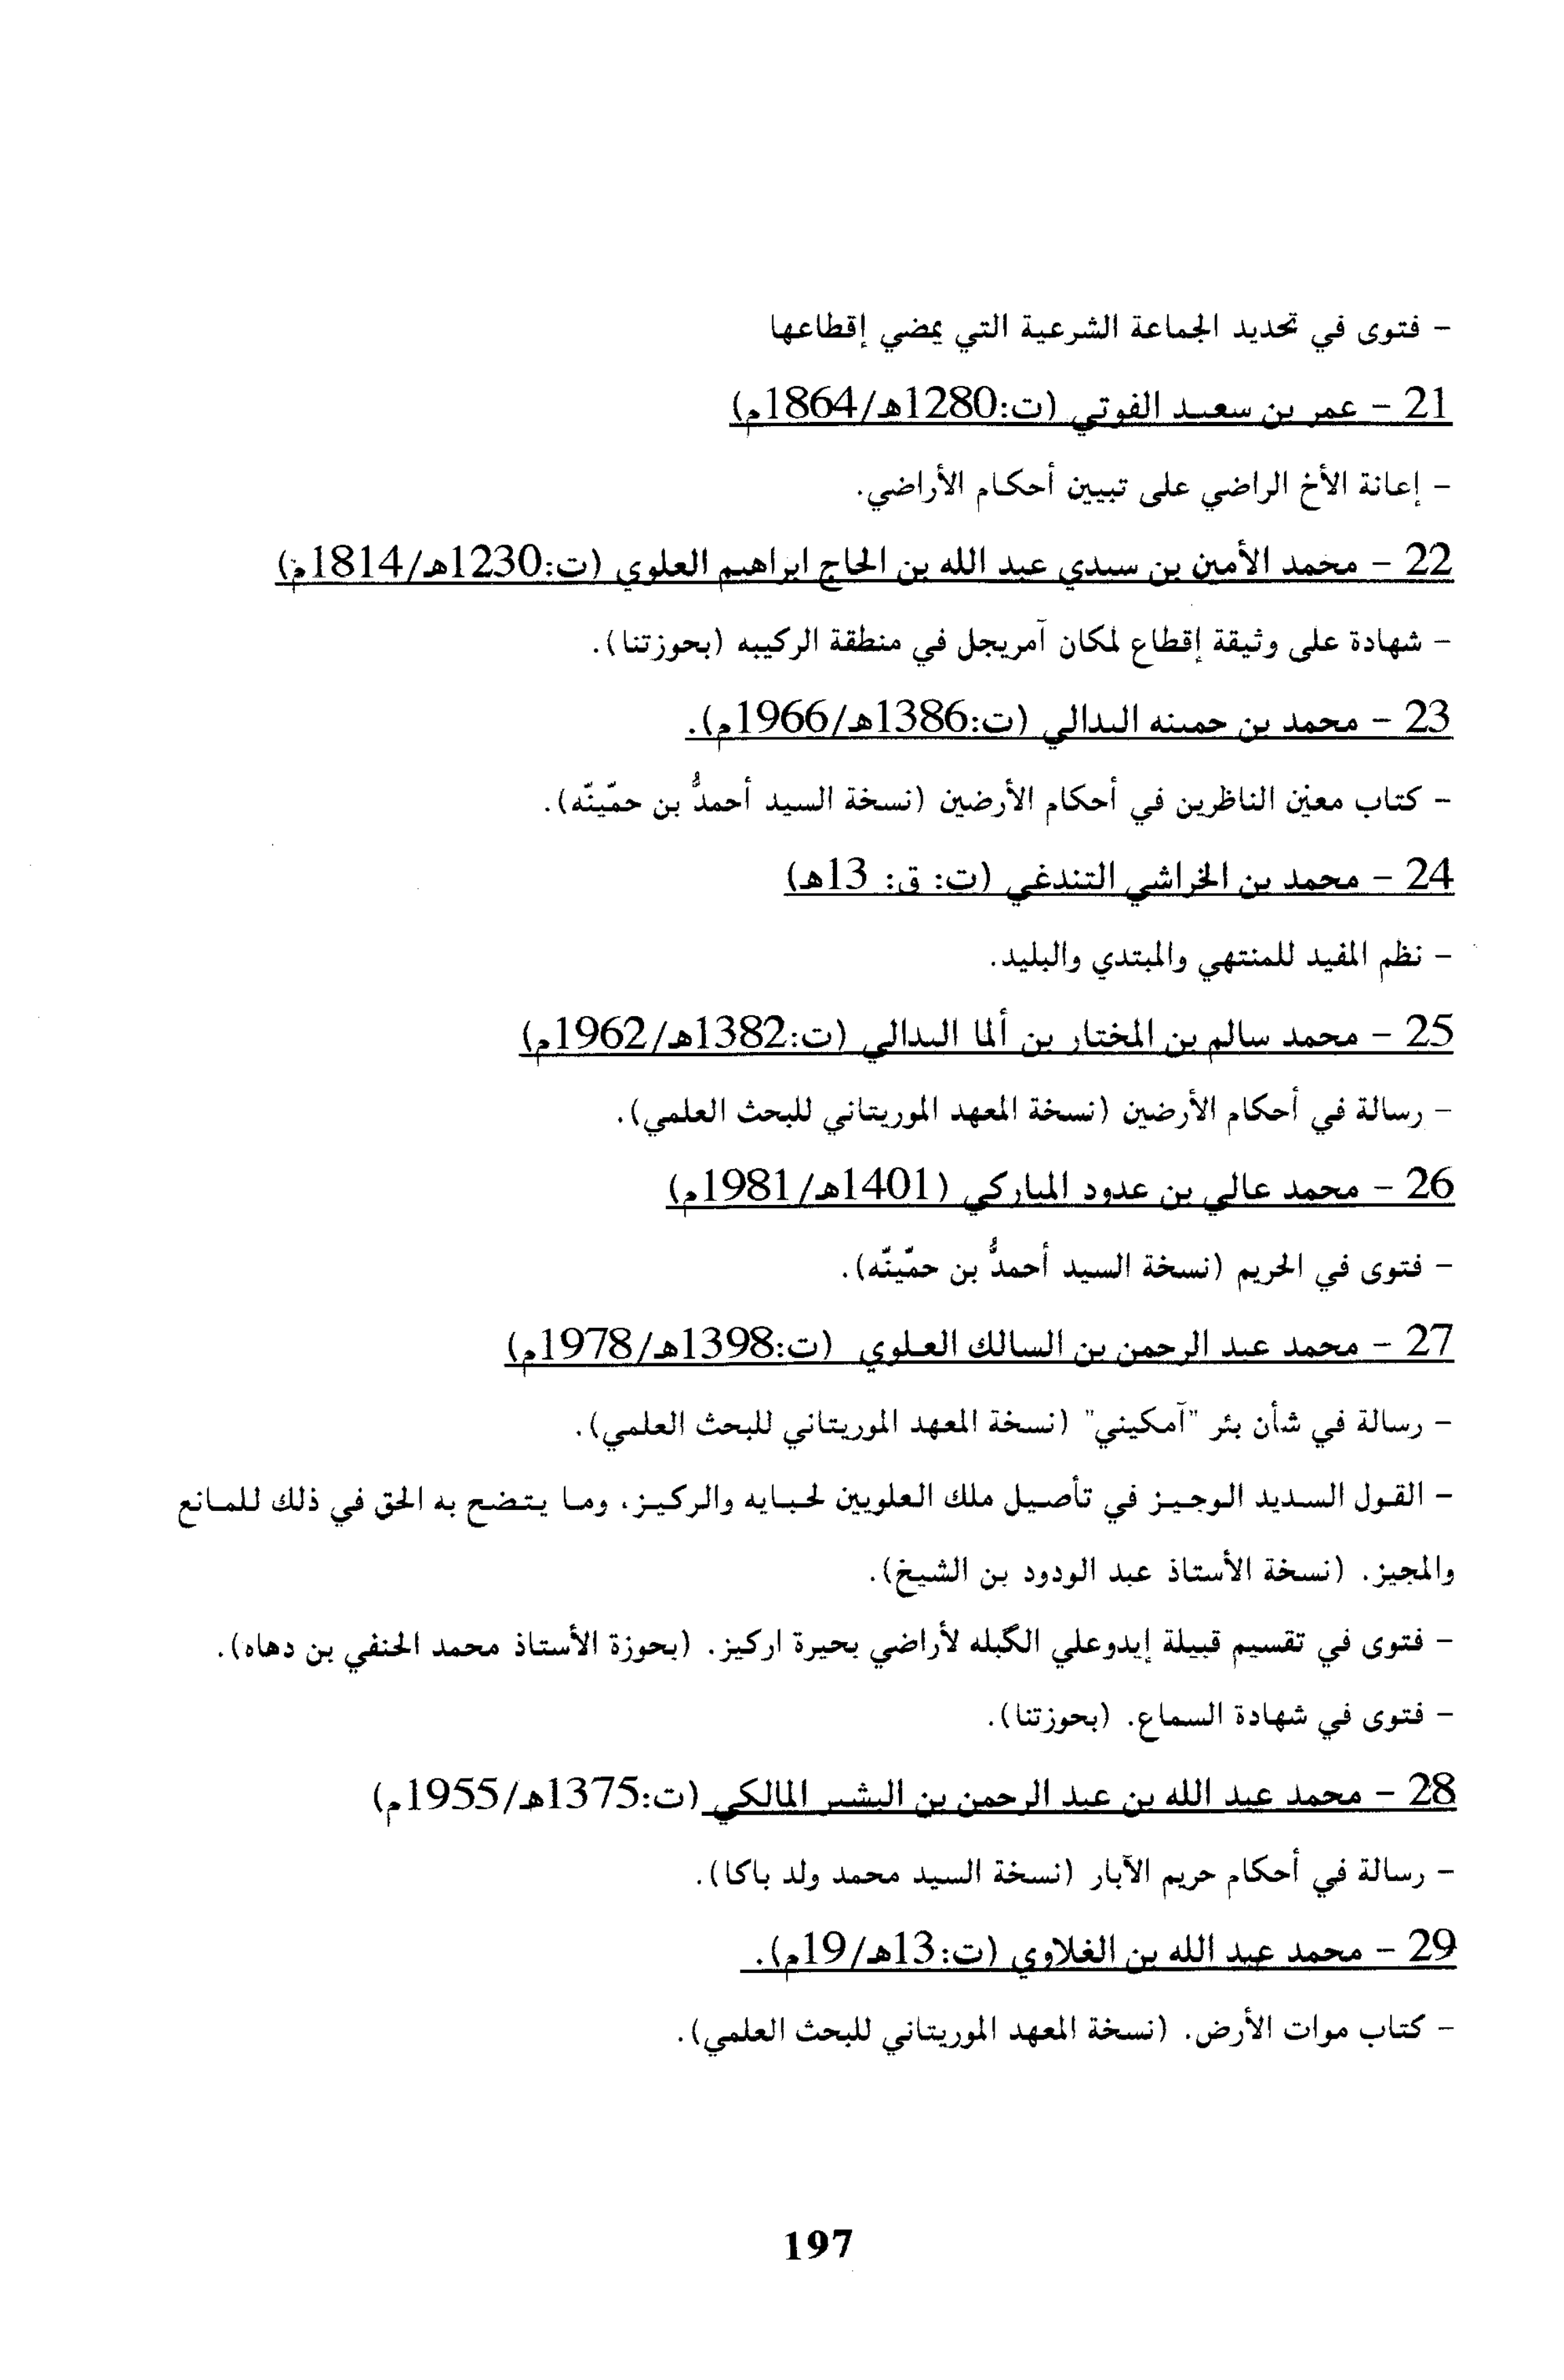 - فتوى في تحديد الجماعة الشرعية التي يمضي إقطاعها
21 - عمر بن سعيد الفوتي (ت:1280هـ/1864م)
- إعانة الأخ الراضي على تبيين أحكام الأراضي.
22 - محمد الأمين بن سيدي عبد الله بن الحاج ابراهيم العلوي (ت:1230هـ/1814م)
- شهادة على وثيقة إقطاع لمكان آمريجل في منطقة الركيبه (بحوزتنا).
23 - محمد بن حمينه اليدالي (ت:1386هـ/1966م).
- كتاب معين الناظرين في أحكام الأرضين (نسخة السيد أحمدُّ بن حمّينّه).
24 - محمد بن الخراشي التندغي (ت: ق: 13هـ)
- نظم المفيد للمنتهي والمبتدي والبليد.
25 - محمد سالم بن المختار بن ألما اليدالي (ت:1382هـ/1962م)
- رسالة في أحكام الأرضين (نسخة المعهد الموريتاني للبحث العلمي).
26 - محمد عالي بن عدود المباركي (1401هـ/1981م)
- فتوى في الحريم (نسخة السيد أحمدُّ بن حمّينّه).
27 - محمد عبد الرحمن بن السالك العلوي (ت:1398هـ/1978م)
- رسالة في شأن بئر "آمكيني" (نسخة المعهد الموريتاني للبحث العلمي).
- القول السديد الوجيز في تأصيل ملك العلويين لحبايه والركيز، وما يتضح به الحق في ذلك للمانع
والمجيز. (نسخة الأستاذ عبد الودود بن الشيخ).
- فتوى في تقسيم قبيلة إيدوعلي الگبله لأراضي بحيرة اركيز. (بحوزة الأستاذ محمد الحنفي بن دهاه).
- فتوى في شهادة السماع. (بحوزتنا).
28 - محمد عبد الله بن عبد الرحمن بن البشير المالكي (ت:1375هـ/1955م)
- رسالة في أحكام حريم الآبار (نسخة السيد محمد ولد باكا).
29 - محمد عبد الله بن الغلاوي (ت:13هـ/19م).
- كتاب موات الأرض. (نسخة المعهد الموريتاني للبحث العلمي).
197